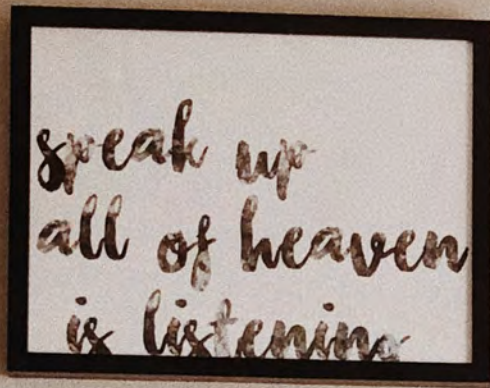 speak up
all of heaven
is listening